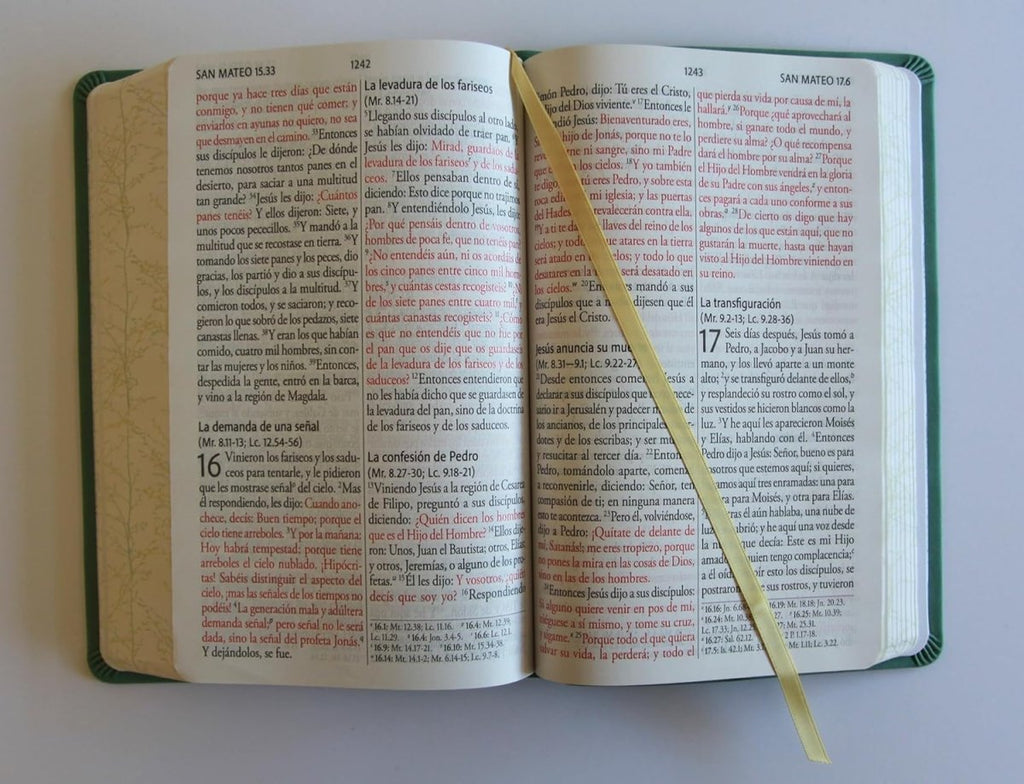 SAN MATEO 15.33
1242
porque ya hace tres días que están
conmigo, y no tienen qué comer; y
enviarlos en ayunas no quiero, no sea
que desmayen en el camino. 33Entonces
sus discípulos le dijeron: ¿De dónde
tenemos nosotros tantos panes en el
desierto, para saciar a una multitud
tan grande? 34Jesús les dijo: ¿Cuántos
panes tenéis? Y ellos dijeron: Siete, y
unos pocos pececillos. 35Y mandó a la
multitud que se recostase en tierra. 36Y
tomando los siete panes y los peces, dio
gracias, los partió y dio a sus discípu-
los, y los discípulos a la multitud. 37Y
comieron todos, y se saciaron; y reco-
gieron lo que sobró de los pedazos, siete
canastas llenas. 38Y eran los que habían
comido, cuatro mil hombres, sin con-
tar las mujeres y los niños. 39Entonces,
despedida la gente, entró en la barca,
y vino a la región de Magdala.
La demanda de una señal
(Mr. 8.11-13; Lc. 12.54-56)
16 Vinieron los fariseos y los sadu-
ceos para tentarle, y le pidieron
que les mostrase señal del cielo. 2Mas
él respondiendo, les dijo: Cuando ano-
chece, decís: Buen tiempo; porque el
cielo tiene arreboles. 3Y por la mañana:
Hoy habrá tempestad; porque tiene
arreboles el cielo nublado. ¡Hipócri-
tas! Sabéis distinguir el aspecto del
cielo, ¡mas las señales de los tiempos no
podéis! 4La generación mala y adúltera
demanda señal; pero señal no le será
dada, sino la señal del profeta Jonás.
Y dejándolos, se fue.
La levadura de los fariseos
(Mr. 8.14-21)
5Llegando sus discípulos al otro lado,
se habían olvidado de traer pan. 6Y
Jesús les dijo: Mirad, guardaos de la
levadura de los fariseos y de los sadu-
ceos. 7Ellos pensaban dentro de sí,
diciendo: Esto dice porque no trajimos
pan. 8Y entendiéndolo Jesús, les dijo:
¿Por qué pensáis dentro de vosotros,
hombres de poca fe, que no tenéis pan?
9¿No entendéis aún, ni os acordáis de
los cinco panes entre cinco mil hom-
bres, y cuántas cestas recogisteis? 10¿Ni
de los siete panes entre cuatro mil, y
cuántas canastas recogisteis? 11¿Cómo
es que no entendéis que no fue por
el pan que os dije que os guardaseis
de la levadura de los fariseos y de los
saduceos? 12Entonces entendieron que
no les había dicho que se guardasen de
la levadura del pan, sino de la doctrina
de los fariseos y de los saduceos.
La confesión de Pedro
(Mr. 8.27-30; Lc. 9.18-21)
13Viniendo Jesús a la región de Cesarea
de Filipo, preguntó a sus discípulos,
diciendo: ¿Quién dicen los hombres
que es el Hijo del Hombre? 14Ellos dije-
ron: Unos, Juan el Bautista; otros, Elías;
y otros, Jeremías, o alguno de los pro-
fetas. 15Él les dijo: Y vosotros, ¿quién
decís que soy yo? 16Respondiendo
16.1: Mr. 12.38; Lc. 11.16. 16.4: Mr. 12.39;
Lc. 11.29. 16.4: Jon. 3.4-5. 16.6: Lc. 12.1.
16.9: Mr. 14.17-21. 16.10: Mr. 15.34-38.
16.14: Mr. 14.1-2; Mr. 6.14-15; Lc. 9.7-8.
1243
SAN MATEO 17.6
Simón Pedro, dijo: Tú eres el Cristo,
Hijo del Dios viviente. 17Entonces le
ndió Jesús: Bienaventurado eres,
hijo de Jonás, porque no te lo
reve ne ni sangre, sino mi Padre
en los cielos. 18Y yo también
te digo, tú eres Pedro, y sobre esta
roca edif mi iglesia; y las puertas
del Hades revalecerán contra ella.
19Y a ti te da llaves del reino de los
cielos; y todo ue atares en la tierra
será atado en cielos; y todo lo que
desatares en la será desatado en
los cielos. 20En mandó a sus
discípulos que a n dijesen que él
era Jesús el Cristo.
Jesús anuncia su mue
(Mr. 8.31—9.1; Lc. 9.22-27
21Desde entonces comen Jesús a
declarar a sus discípulos que nece-
sario ir a Jerusalén y padecer m de
los ancianos, de los principales r-
dotes y de los escribas; y ser mu
y resucitar al tercer día. 22Enton
Pedro, tomándolo aparte, comen
a reconvenirle, diciendo: Señor, ten
compasión de ti; en ninguna manera
esto te acontezca. 23Pero él, volviéndose,
dijo a Pedro: ¡Quítate de delante de
mí, Satanás!; me eres tropiezo, porque
no pones la mira en las cosas de Dios,
sino en las de los hombres.
24Entonces Jesús dijo a sus discípulos:
Si alguno quiere venir en pos de mí,
niéguese a sí mismo, y tome su cruz,
y sígame. 25Porque todo el que quiera
salvar su vida, la perderá; y todo el
que pierda su vida por causa de mí, la
hallará. 26Porque ¿qué aprovechará al
hombre, si ganare todo el mundo, y
perdiere su alma? ¿O qué recompensa
dará el hombre por su alma? 27Porque
el Hijo del Hombre vendrá en la gloria
de su Padre con sus ángeles, y enton-
ces pagará a cada uno conforme a sus
obras. 28De cierto os digo que hay
algunos de los que están aquí, que no
gustarán la muerte, hasta que hayan
visto al Hijo del Hombre viniendo en
su reino.
La transfiguración
(Mr. 9.2-13; Lc. 9.28-36)
17 Seis días después, Jesús tomó a
Pedro, a Jacobo y a Juan su her-
mano, y los llevó aparte a un monte
alto; 2y se transfiguró delante de ellos,
y resplandeció su rostro como el sol, y
sus vestidos se hicieron blancos como la
luz. 3Y he aquí les aparecieron Moisés
y Elías, hablando con él. 4Entonces
Pedro dijo a Jesús: Señor, bueno es para
nosotros que estemos aquí; si quieres,
amos aquí tres enramadas: una para
ra para Moisés, y otra para Elías.
ras él aún hablaba, una nube de
luz ubrió; y he aquí una voz desde
la nu que decía: Este es mi Hijo
amado quien tengo complacencia;
a él oíd oír esto los discípulos, se
postraron sus rostros, y tuvieron
16.16: Jn. 6.68 16.19: Mt. 18.18; Jn. 20.23.
16.24: Mt. 10.38 16.25: Mt. 10.39;
Lc. 17.33; Jn. 12.25 Mt. 25.31.
16.27: Sal. 62.12. 2 P. 1.17-18.
17.5: Is. 42.1; Mt. 3. Mr. 1.11; Lc. 3.22.